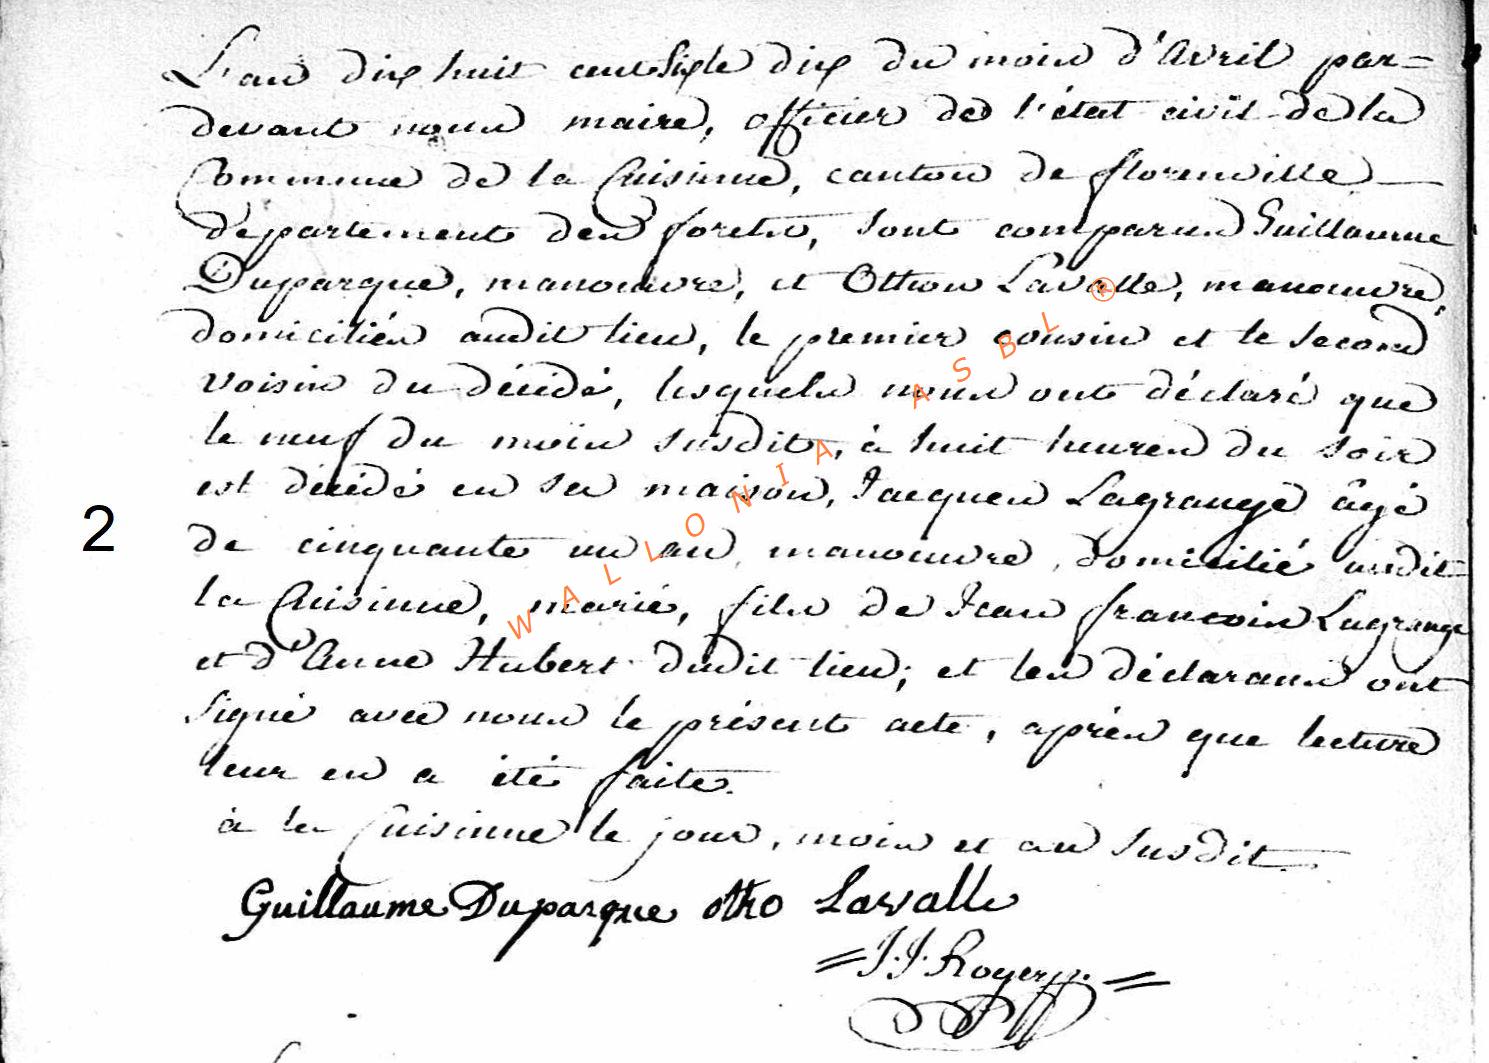 L'an dix huit cent six le dix du mois d'Avril par=
devant nous maire, officier de l'état civil de la
Commune de la Cuisinne, canton de florenville
département des forets, sont comparus Guillaume
Duparque, manoeuvre, et Otton Lavalle, manoeuvre,
domiciliés audit lieu, le premier cousin et le second
voisin du décédé, lesquels nous ont déclaré que
le neuf du mois susdit, à huit heures du soir
est décédé en sa maison, Jacques Lagrange âgé
2
de cinquante un an, manoeuvre, domicilié audit
la Cuisinne, marié, fils de Jean francois Lagrange
et d'Anne Hubert dudit lieu; et les déclarans ont
signé avec nous le présent acte, après que lecture
leur en a été faite.
à la Cuisinne le jour, mois et an susdit.
Guillaume Duparque otto Lavalle
= J. J. Roger =
WALLONIA ASBL ®